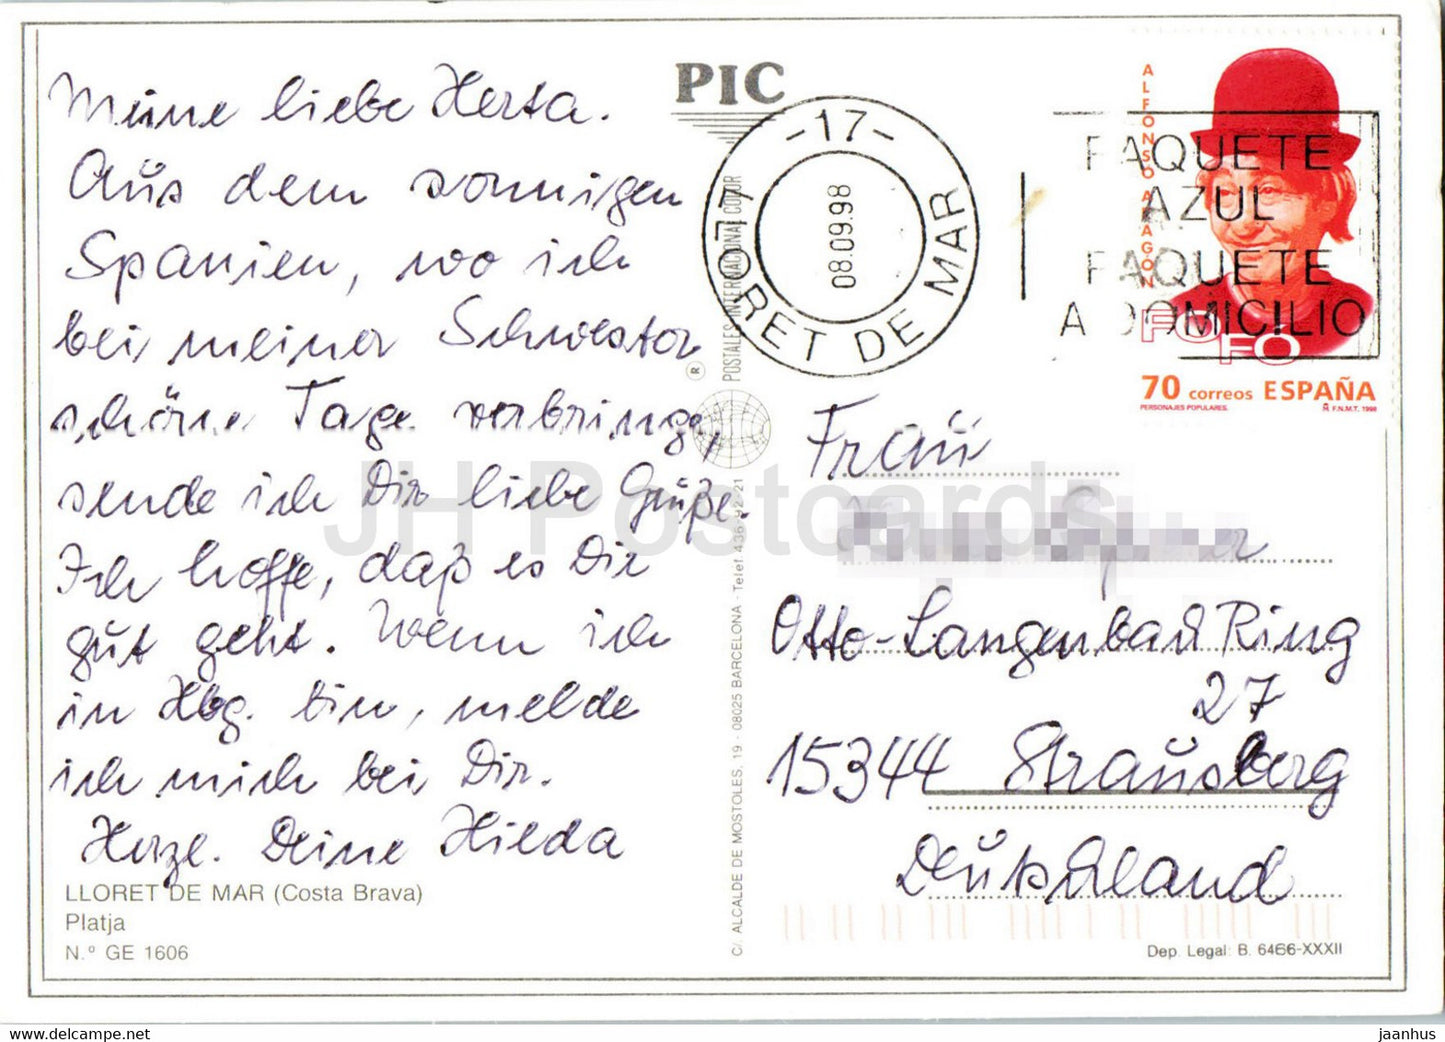 Meine liebe Herta.
Aus dem sonnigen
Spanien, wo ich
bei meiner Schwester
schöne Tage verbringe,
sende ich Dir liebe Grüße.
Ich hoffe, daß es Dir
gut geht. Wenn ich
in Hbg. bin, melde
ich mich bei Dir.
Herzl. Deine Hilda
LLORET DE MAR (Costa Brava)
Platja
N.º GE 1606
PIC
POSTALES INTERNACIONAL COLOR
®
C/. ALCALDE DE MOSTOLES, 19 - 08025 BARCELONA - Telef. 436 92 21
-17-
08.09.98
LLORET DE MAR
PAQUETE
AZUL
PAQUETE
A DOMICILIO
ALFONSO ARAGÓN
FO
FÓ
70 correos ESPAÑA
PERSONAJES POPULARES. F.N.M.T. 1998
Frau
Otto-Langenbach Ring
27
15344 Strausberg
Deutschland
Dep. Legal: B. 6466-XXXII
JH Postcards
www.delcampe.net
jaanhus